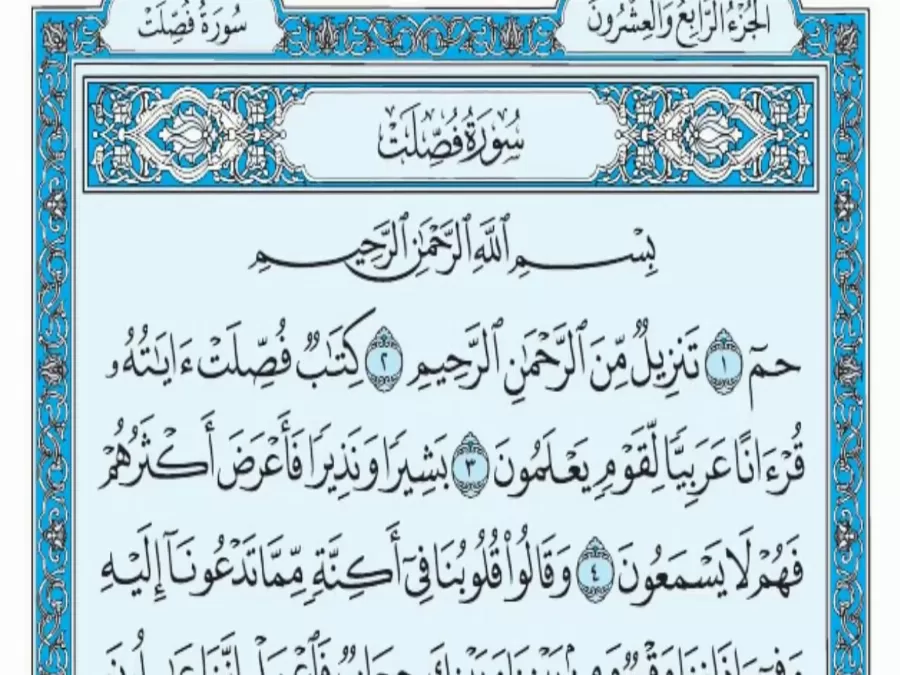 الجُزْءُ الرَّابِعُ وَالعِشْرُونَ
سُورَةُ فُصِّلَتْ
سُورَةُ فُصِّلَتْ
بِسْمِ ٱللَّهِ ٱلرَّحْمَٰنِ ٱلرَّحِيمِ
حمٓ ١ تَنزِيلٌ مِّنَ ٱلرَّحْمَٰنِ ٱلرَّحِيمِ ٢ كِتَٰبٌ فُصِّلَتْ ءَايَٰتُهُۥ
قُرْءَانًا عَرَبِيًّا لِّقَوْمٍ يَعْلَمُونَ ٣ بَشِيرًا وَنَذِيرًا فَأَعْرَضَ أَكْثَرُهُمْ
فَهُمْ لَا يَسْمَعُونَ ٤ وَقَالُوا۟ قُلُوبُنَا فِىٓ أَكِنَّةٍ مِّمَّا تَدْعُونَآ إِلَيْهِ